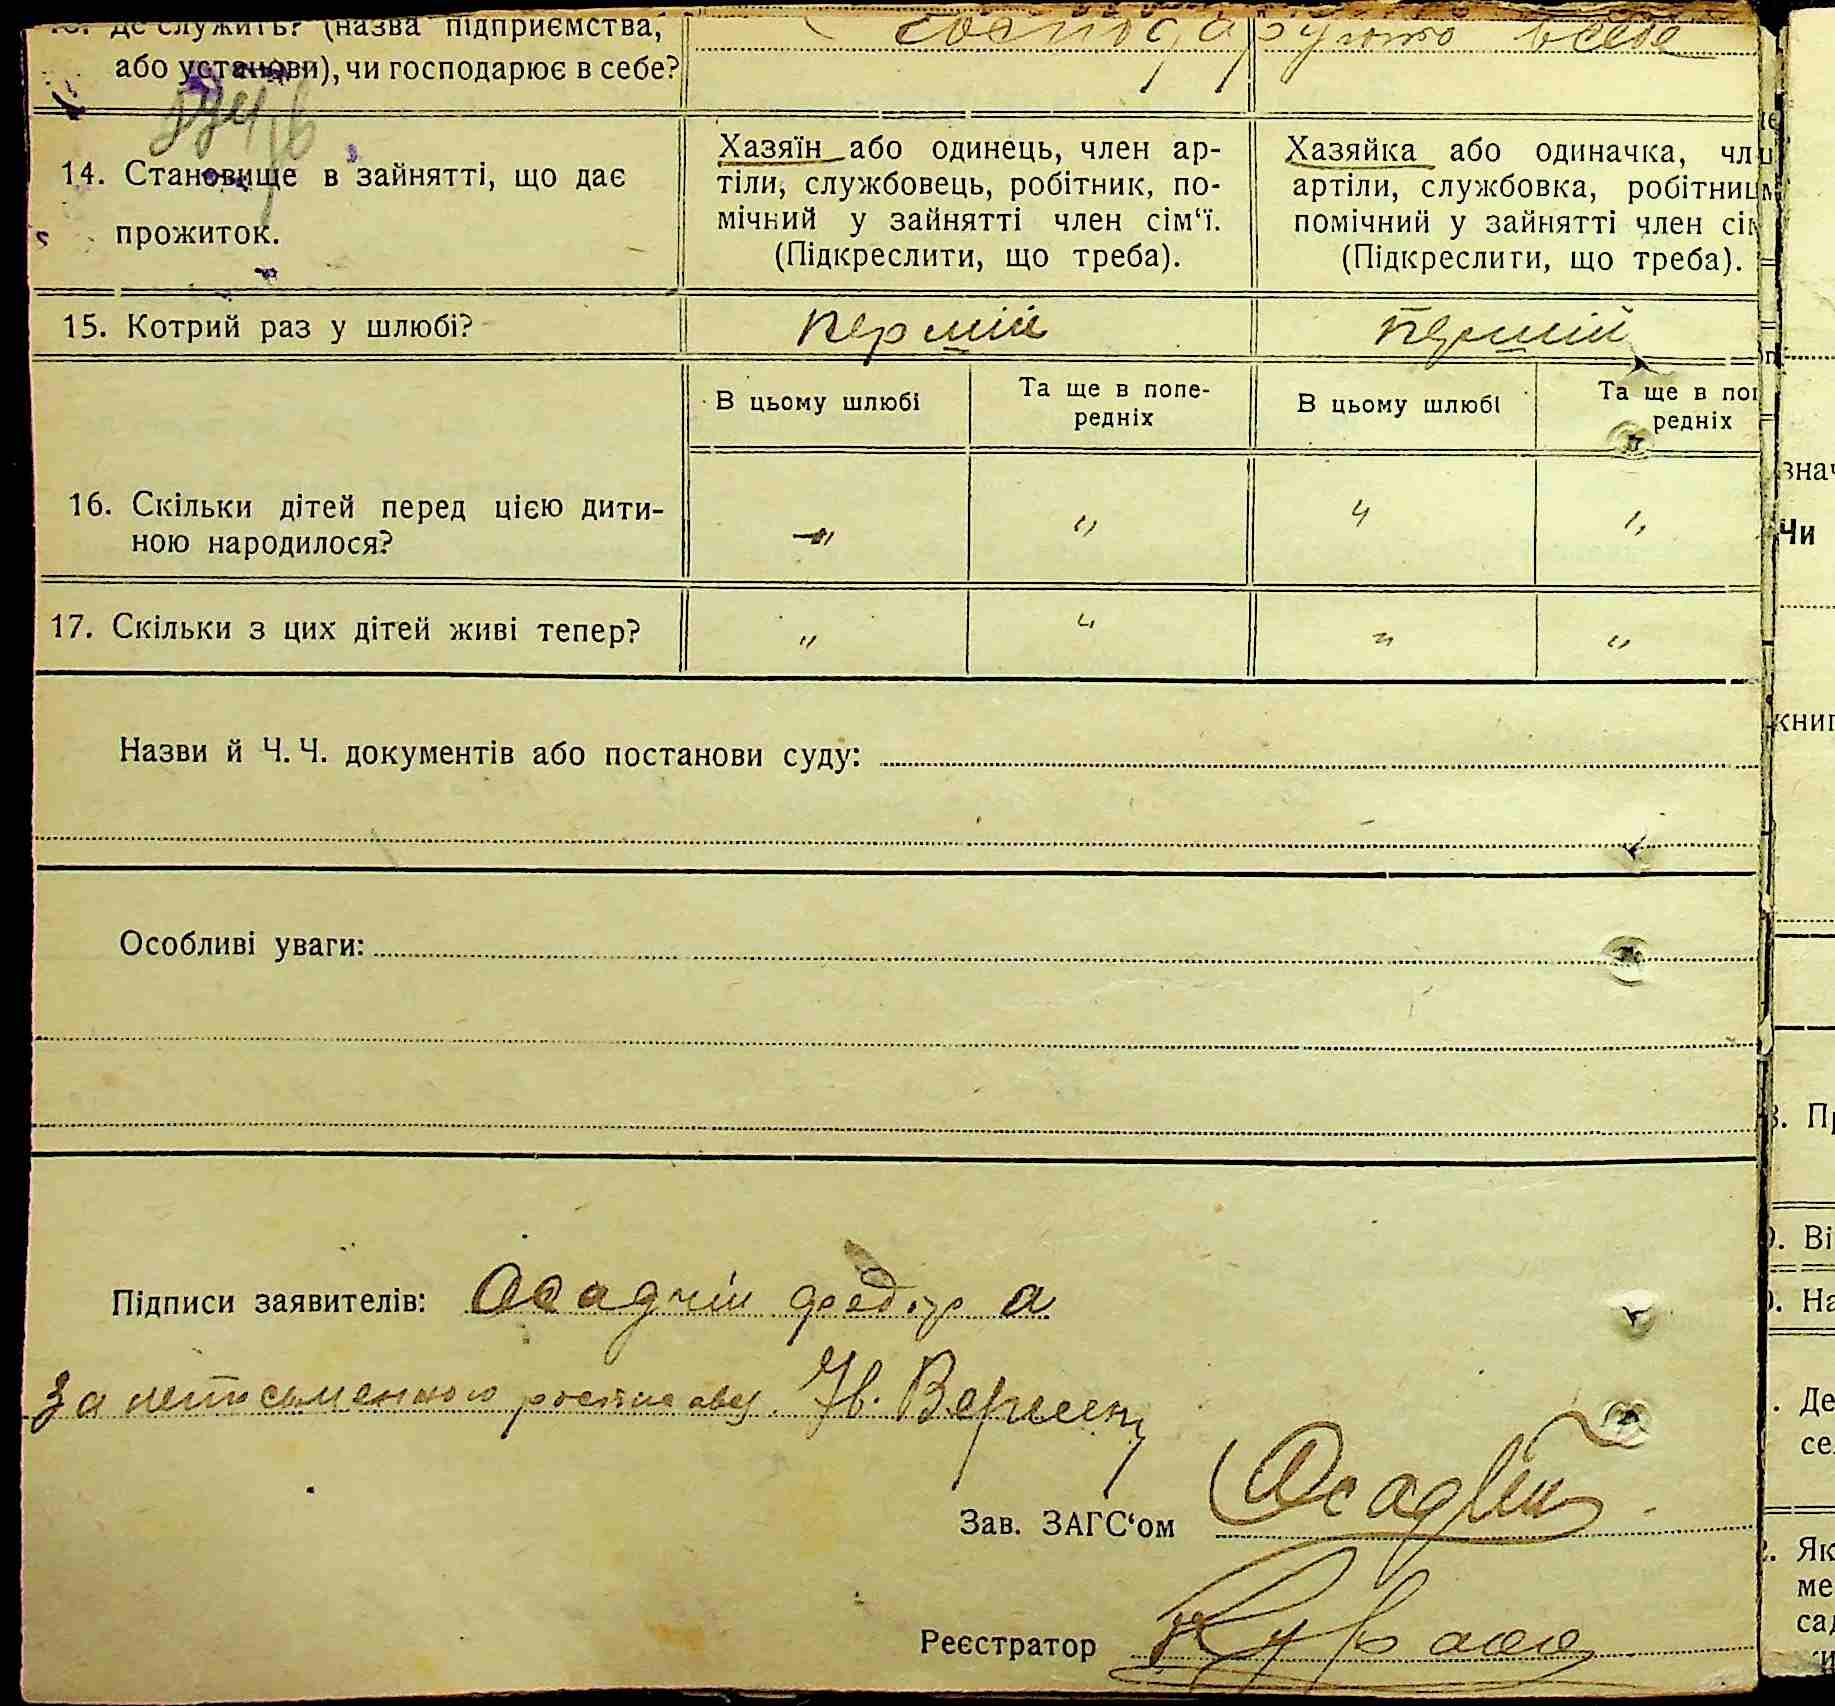 Де служить? (назва підприємства,
або установи), чи господарює в себе?
господарують в себе
14. Становище в зайнятті, що дає
прожиток.
Хазяїн або одинець, член ар-
тіли, службовець, робітник, по-
мічний у зайнятті член сім'ї.
(Підкреслити, що треба).
Хазяйка або одиначка, чл
артіли, службовка, робітниц
помічний у зайнятті член сі
(Підкреслити, що треба).
15. Котрий раз у шлюбі?
перший
перший
В цьому шлюбі
Та ще в попе-
редніх
В цьому шлюбі
Та ще в по
редніх
16. Скільки дітей перед цією дити-
ною народилося?
" " " "
17. Скільки з цих дітей живі тепер?
" " " "
Назви й Ч. Ч. документів або постанови суду:
Особливі уваги:
Підписи заявителів: Осадчій федор а
За неписьменного росписавсь Ів.
Зав. ЗАГС'ом Осадчій
Реєстратор
знач
Чи
книг
3. Пр
Ві
На
Де
се
Як
ме
сад